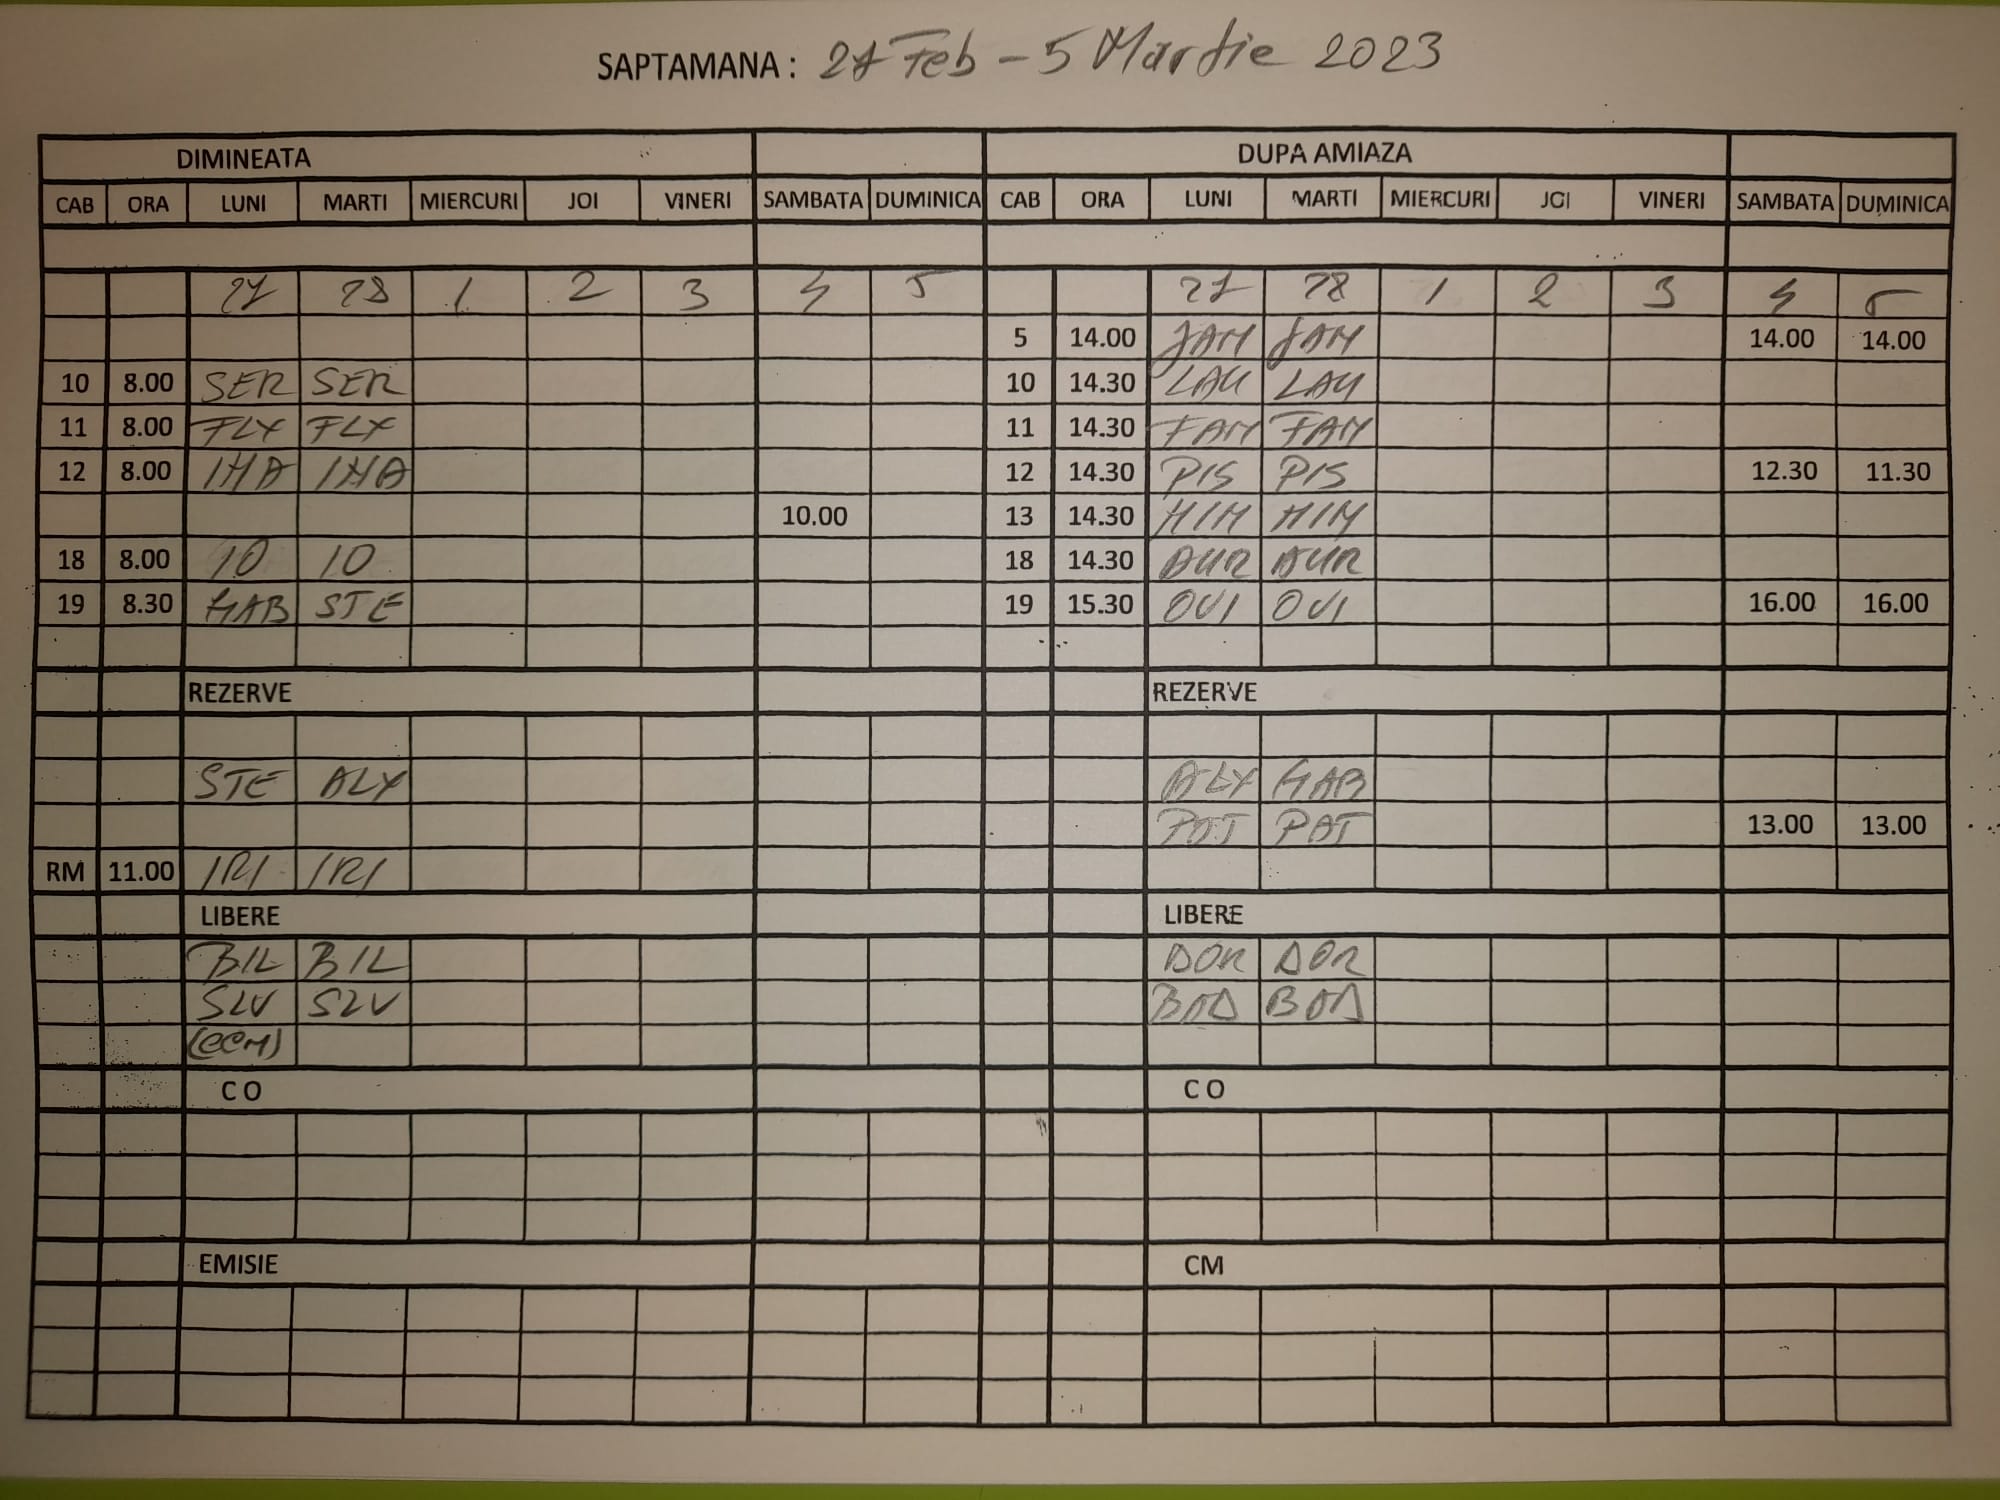 SAPTAMANA : 27 Feb - 5 Martie 2023
DIMINEATA DUPA AMIAZA
CAB ORA LUNI MARTI MIERCURI JOI VINERI SAMBATA DUMINICA CAB ORA LUNI MARTI MIERCURI JOI VINERI SAMBATA DUMINICA
27 28 1 2 3 4 5 27 28 1 2 3 4 5
5 14.00 JAM JAM 14.00 14.00
10 8.00 SER SER 10 14.30 LAU LAU
11 8.00 FLY FLY 11 14.30 FAM FAM
12 8.00 IHA IHA 12 14.30 PIS PIS 12.30 11.30
10.00 13 14.30 MIM MIM
18 8.00 IO IO 18 14.30 AUR AUR
19 8.30 GAB STE 19 15.30 OVI OVI 16.00 16.00
REZERVE REZERVE
STE ALY ALY GAB
POT POT 13.00 13.00
RM 11.00 IRI IRI
LIBERE LIBERE
BIL BIL DOR DOR
SLV SLV
C O C O
EMISIE CM